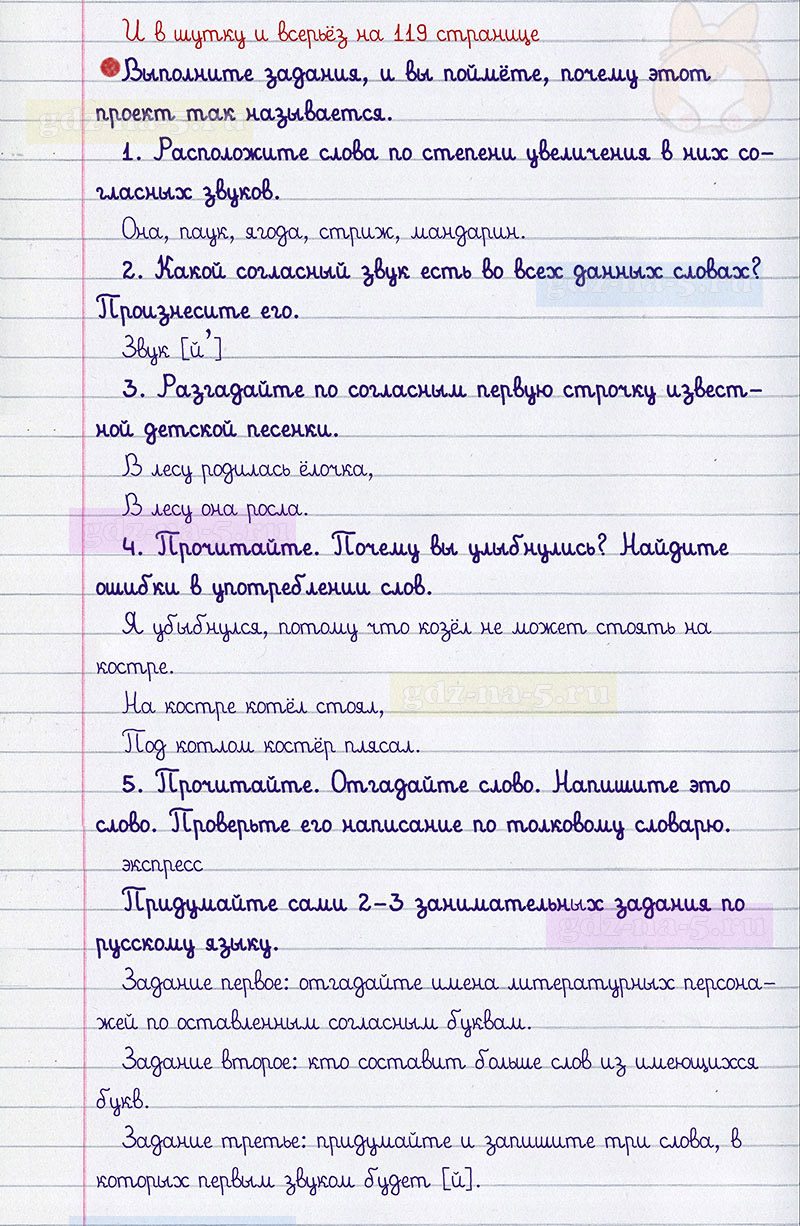 И в шутку и всерьёз на 119 странице
Выполните задания, и вы поймёте, почему этот
проект так называется.
gdz-na-5.ru
1. Расположите слова по степени увеличения в них со-
гласных звуков.
Она, паук, ягода, стриж, мандарин.
2. Какой согласный звук есть во всех данных словах?
gdz-na-5.ru
Произнесите его.
Звук [й']
3. Разгадайте по согласным первую строчку извест-
ной детской песенки.
В лесу родилась ёлочка,
В лесу она росла.
gdz-na-5.ru
4. Прочитайте. Почему вы улыбнулись? Найдите
ошибки в употреблении слов.
Я убыбнулся, потому что козёл не может стоять на
костре.
gdz-na-5.ru
На костре котёл стоял,
Под котлом костёр плясал.
5. Прочитайте. Отгадайте слово. Напишите это
слово. Проверьте его написание по толковому словарю.
экспресс
Придумайте сами 2-3 занимательных задания по
gdz-na-5.ru
русскому языку.
Задание первое: отгадайте имена литературных персона-
жей по оставленным согласным буквам.
Задание второе: кто составит больше слов из имеющихся
букв.
Задание третье: придумайте и запишите три слова, в
которых первым звуком будет [й].